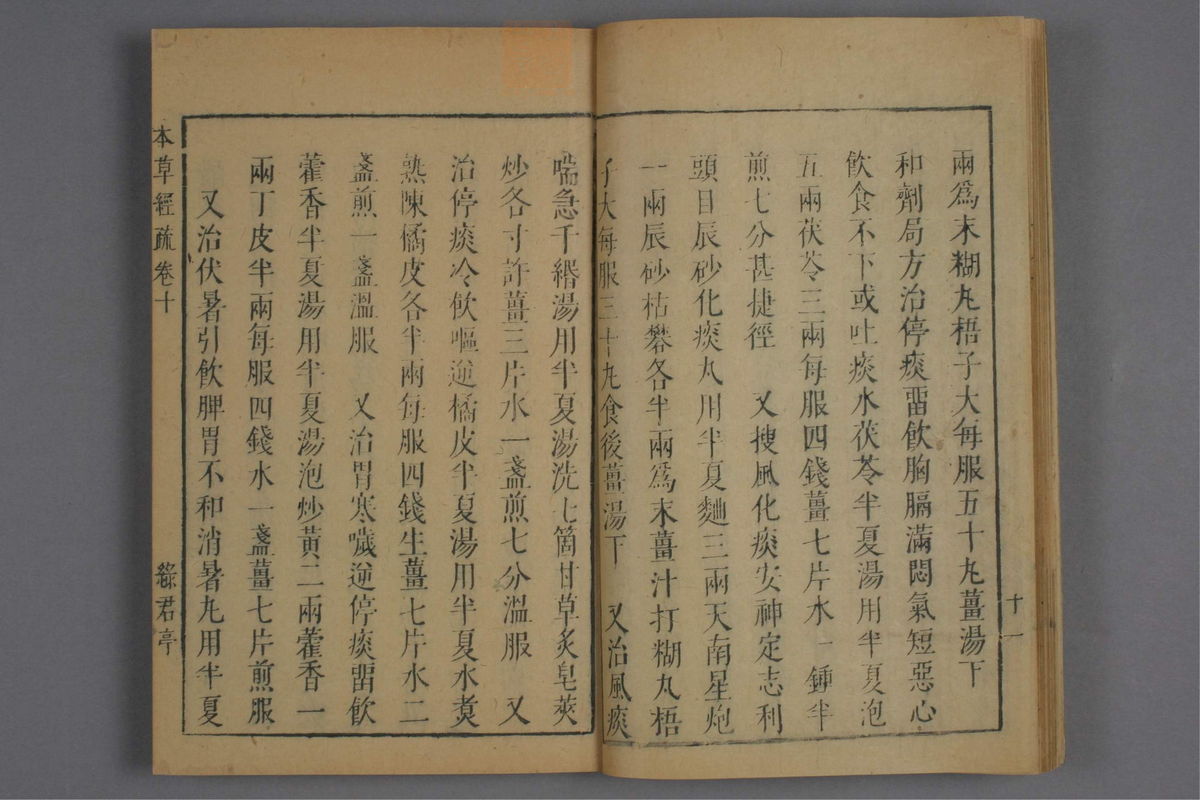 兩爲末糊丸梧子大每服五十丸薑湯下
和劑局方治停痰畱飲胸膈滿悶氣短惡心
飲食不下或吐痰水茯苓半夏湯用半夏泡
五兩茯苓三兩每服四錢薑七片水一鍾半
煎七分甚捷徑　又搜風化痰安神定志利
頭目辰砂化痰丸用半夏麯三兩天南星炮
一兩辰砂枯礬各半兩爲末薑汁打糊丸梧
子大每服三十丸食後薑湯下　又治風痰
十一
喘急千緡湯用半夏湯洗七箇甘草炙皂莢
炒各寸許薑三片水一盞煎七分溫服　又
治停痰冷飲嘔逆橘皮半夏湯用半夏水煑
熟陳橘皮各半兩每服四錢生薑七片水二
盞煎一盞溫服　又治胃寒噦逆停痰畱飲
藿香半夏湯用半夏湯泡炒黃二兩藿香一
兩丁皮半兩每服四錢水一盞薑七片煎服
又治伏暑引飲脾胃不和消暑丸用半夏
本草經疏　卷十　綠君亭